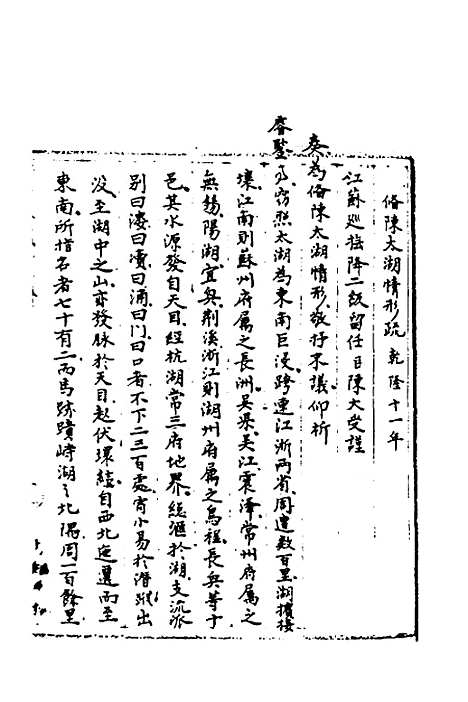 條陳太湖情形疏 乾隆十一年
江蘇巡撫降二級留任臣陳大受謹
奏為條陳太湖情形敬抒末議仰祈
睿鑒事竊照太湖為東南巨浸跨連江浙兩省周遭數百里湖濱接
壤江南則蘇州府屬之長洲吳縣吳江震澤常州府屬之
無錫陽湖宜興荆溪浙江則湖州府屬之烏程長興等十
邑其水源發自天目經杭湖常三府地界總滙於湖支流派
別曰漊曰瀆曰涌曰門曰口者不下二三百處宵小易於潛蹤出
沒至湖中之山亦發脉於天目起伏環繞自西北迤邐而至
東南所指名者七十有二而馬跡蹟峙湖之北隅周一百餘里